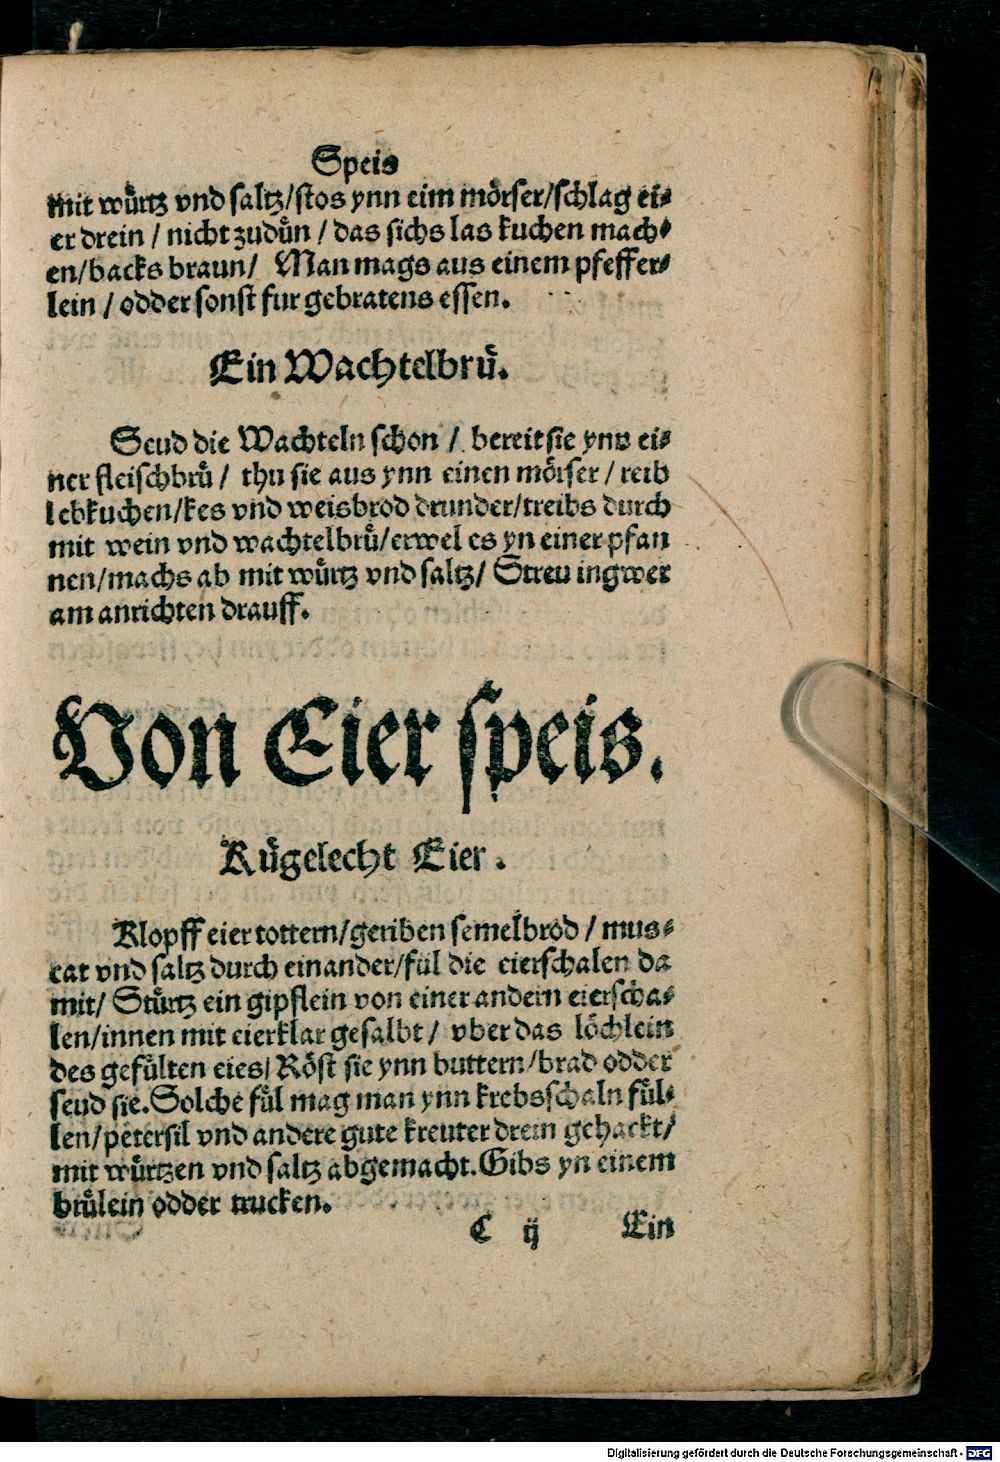 Speis
mit wuͤrtz vnd saltz/stos ynn eim moͤrser/schlag ei⸗
er drein / nicht zuduͤn / das sichs las kuchen mach⸗
en/backs braun/ Man mags aus einem pfeffer⸗
lein / odder sonst fur gebratens essen.
Ein Wachtelbruͤ.
Seud die Wachteln schon / bereit sie ynn ei⸗
ner fleischbruͤ / thu sie aus ynn einen moͤrser / reib
lebkuchen/kes vnd weisbrod drunder/treibs durch
mit wein vnd wachtelbruͤ/erwel es yn einer pfan
nen/machs ab mit wuͤrtz vnd saltz/ Streu ingwer
am anrichten drauff.
Von Eier speis.
Kuͤgelecht Eier.
Klopff eier tottern/geriben semelbrod / mus⸗
cat vnd saltz durch einander/fuͤl die eierschalen da
mit/ Stuͤrtz ein gipflein von einer andern eierscha⸗
len/innen mit eierklar gesalbt/ vber das loͤchlein
des gefuͤlten eies/ Roͤst sie ynn buttern/brad odder
seud sie. Solche fuͤl mag man ynn krebsschaln fuͤl⸗
len/petersil vnd andere gute kreuter drein gehackt/
mit wuͤrtzen vnd saltz abgemacht. Gibs yn einem
bruͤlein odder trucken.
C ij Ein
Digitalisierung gefördert durch die Deutsche Forschungsgemeinschaft - DFG